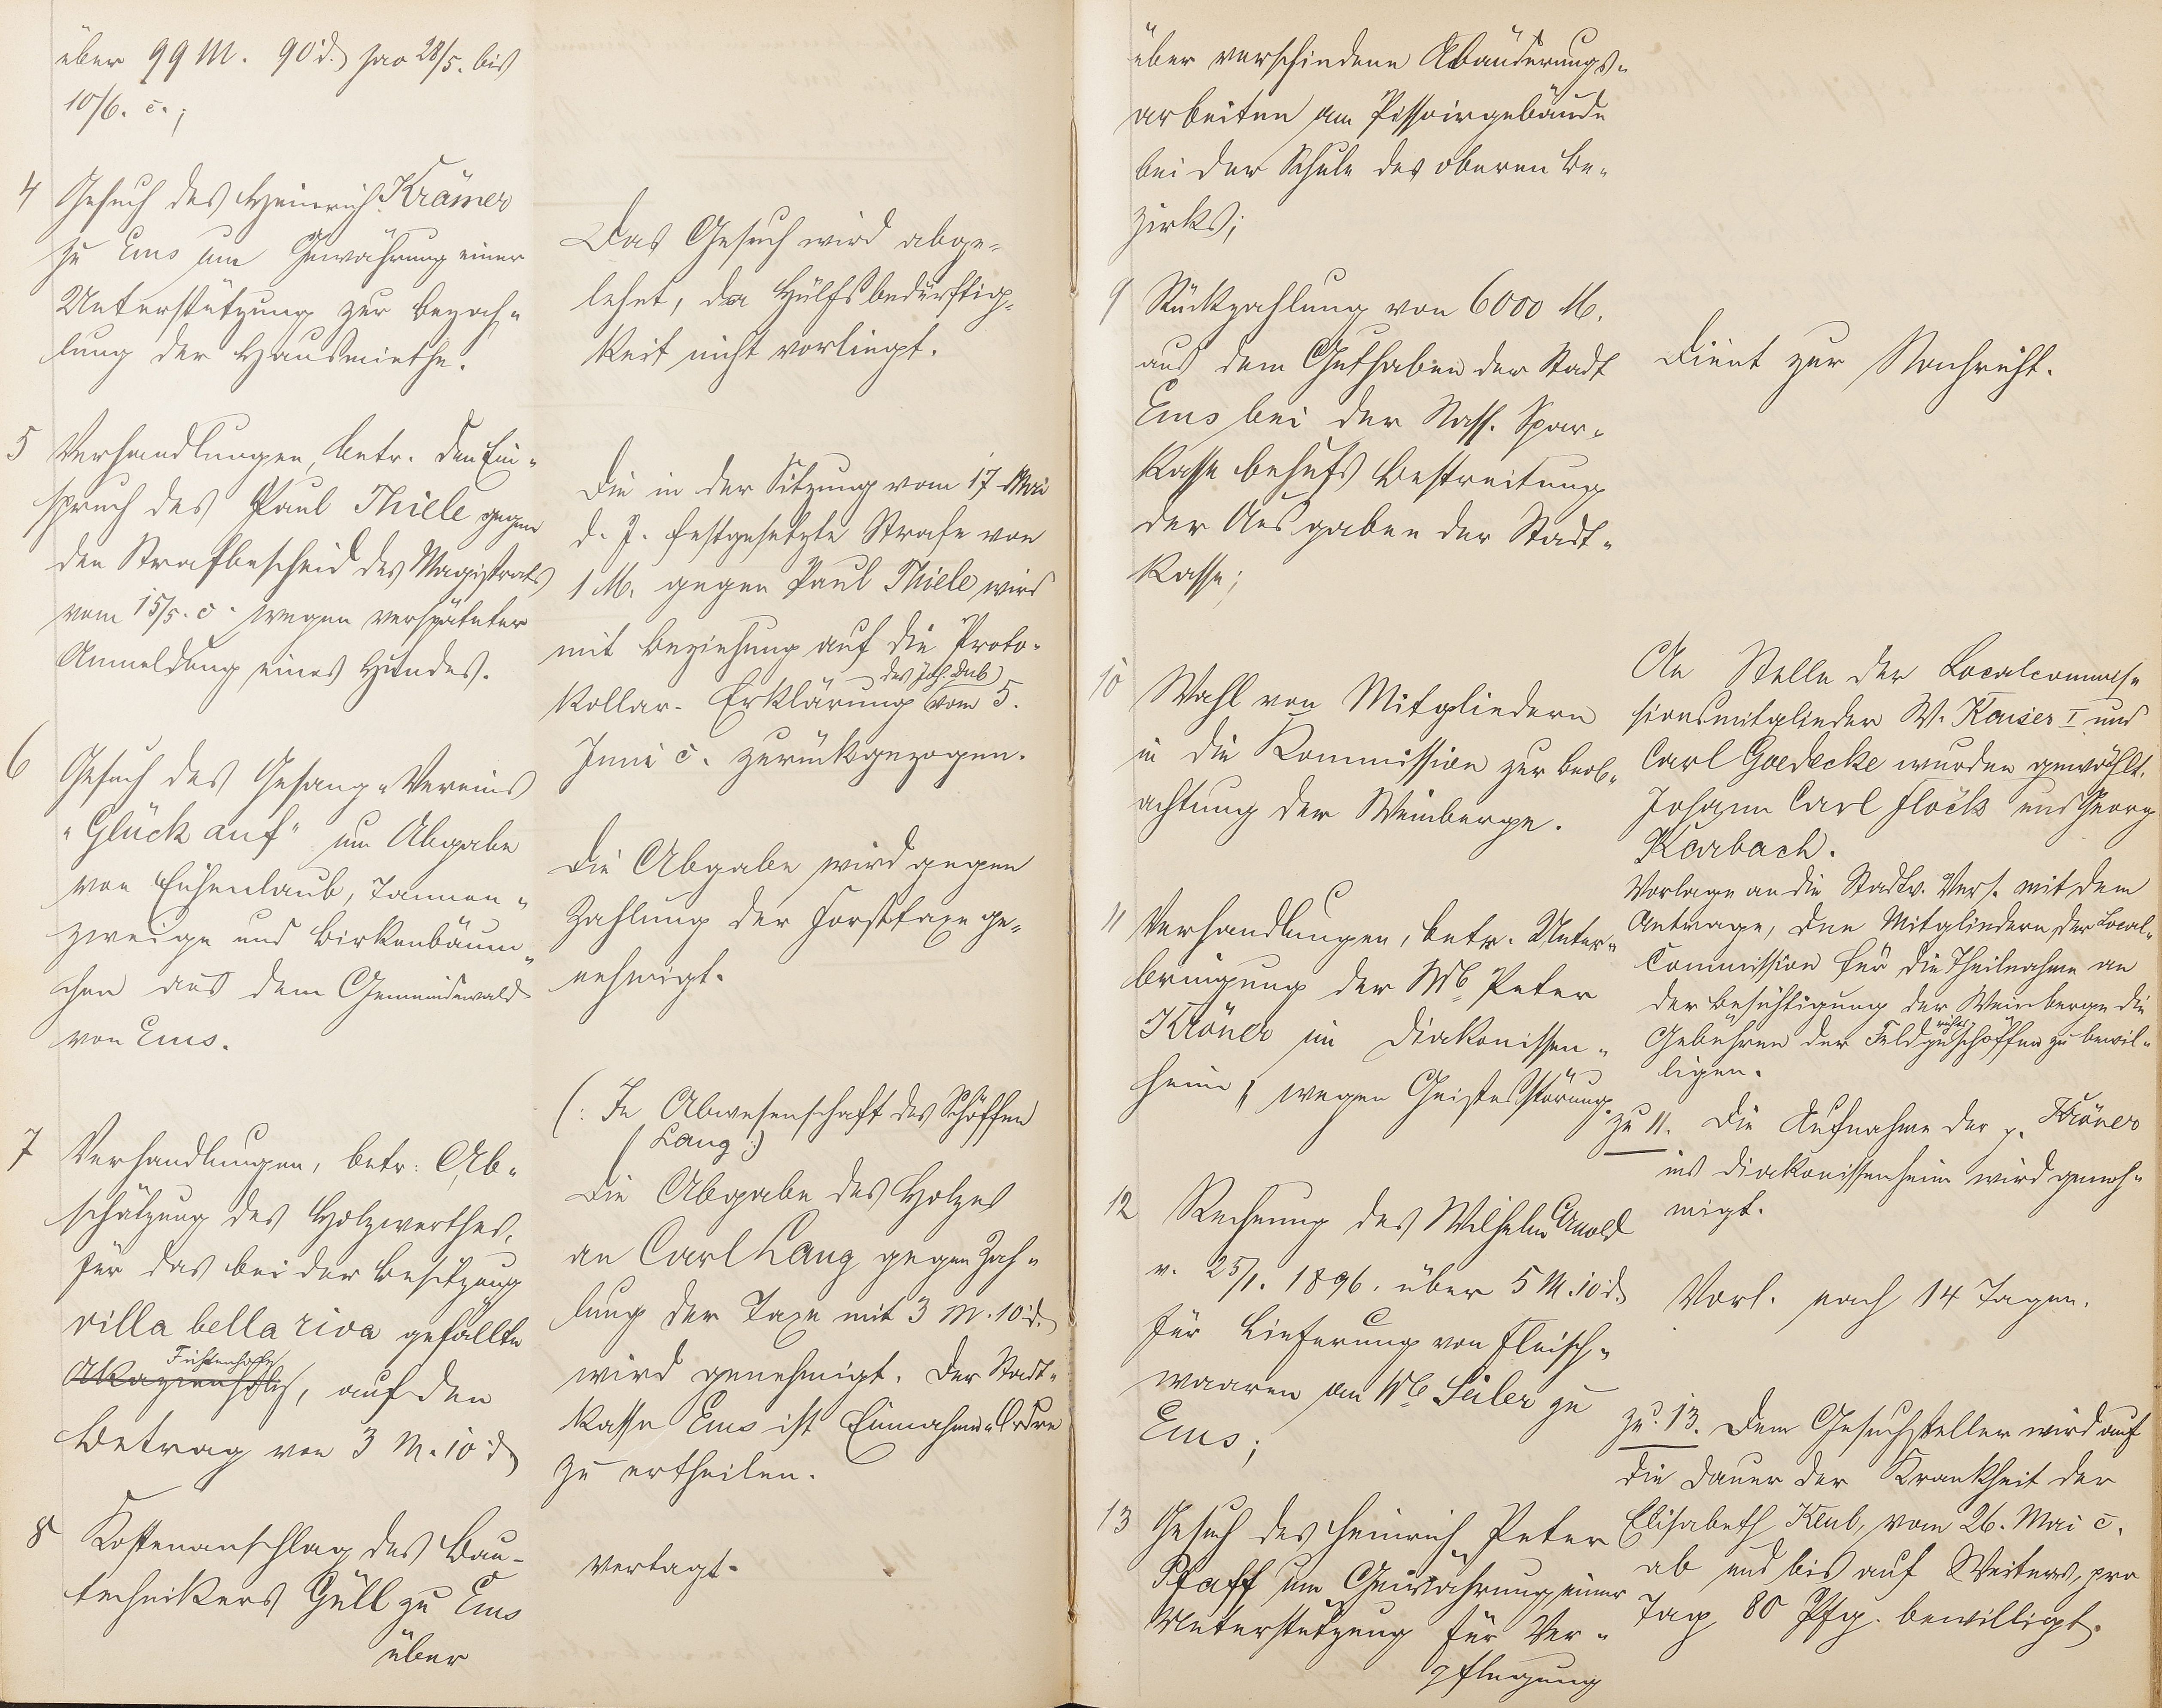 über 99 M. 90 d. pro 28/5. bis
10/6. c.;
4 Gesuch des Heinrich Krämer
zu Ems um Gewährung einer
Unterstützung zur Bezah-
lung der Hausmiethe.
Das Gesuch wird abge-
lehnt, da Hülfsbedürftig-
keit nicht vorliegt.
5 Verhandlungen, betr. den Ein-
spruch des Paul Thiele gegen
den Strafbescheid des Magistrats
vom 15/5. c. wegen verspäteter
Anmeldung eines Hundes.
Die in der Sitzung vom 17. Mai
d. J. festgesetzte Strafe von
1 M. gegen Paul Thiele wird
mit Beziehung auf die Proto-
des Joh. Dub
kollar-Erklärung vom 5.
Juni c. zurückgezogen.
6 Gesuch des Gesang-Vereins
"Glück auf" um Abgabe
von Eichenlaub, Tannen-
zweige und Birkenbäum-
chen aus dem Gemeindewald
von Ems.
Die Abgabe wird gegen
Zahlung der Forsttaxe ge-
nehmigt.
7 Verhandlungen, betr. Ab-
schätzung des Holzwerthes,
für das bei der Besitzung
villa bella riva gefällte
Fichtenholz
Akazienholz, auf den
Betrag von 3 M. 10 d.
(: In Abwesenschaft des Schöffen
Lang :)
Die Abgabe des Holzes
an Carl Lang gegen Zah-
lung der Taxe mit 3 M. 10 d.
wird genehmigt. Der Stadt-
kasse Ems ist Einnahme-Ordre
zu ertheilen.
8 Kostenanschlag des Bau-
technikers Güll zu Ems
über
vertagt.
über verschiedene Abänderungs-
arbeiten am Pissoirgebäude
bei der Schule des oberen Be-
zirks;
9 Rückzahlung von 6000 M.
aus dem Guthaben der Stadt
Ems bei der Nass. Spar-
kasse behufs Bestreitung
der Ausgaben der Stadt-
kasse;
Dient zur Nachricht.
10 Wahl von Mitgliedern
in die Kommission zur Beob-
achtung der Weinberge.
An Stelle der Localcommis-
sionsmitglieder W. Kaiser I und
Carl Goedecke wurden gewählt.
Johann Carl Flöck und Georg
Karbach.
Vorlage an die Stadtv. Vers. mit dem
Antrage, den Mitgliedern der Local-
Commission für die Theilnahme an
der Besichtigung der Weinberge die
Gebühren der Feldgerichtsschöffen zu bewil-
ligen.
11 Verhandlungen, betr. Unter-
bringung der Wb Peter
Kröner im Diakonissen-
heim, wegen Geistesstörung.
zu 11. Die Aufnahme der p. Kröner
ins Diakonissenheim wird geneh-
migt.
12 Rechnung des Wilhelm Arnold
v. 25/1. 1896. über 5 M. 10 d.
für Lieferung von Fleisch-
waaren an Wb Seiler zu
Ems;
Vorl. nach 14 Tagen.
13 Gesuch des Heinrich Peter
Pfaff um Gewährung einer
Unterstützung für Ver-
pflegung
zu. 13. Dem Gesuchsteller wird auf
die Dauer der Krankheit der
Elisabeth Keub, vom 26. Mai c.
ab und bis auf Weiteres, pro
Tag 80 Pfg. bewilligt.